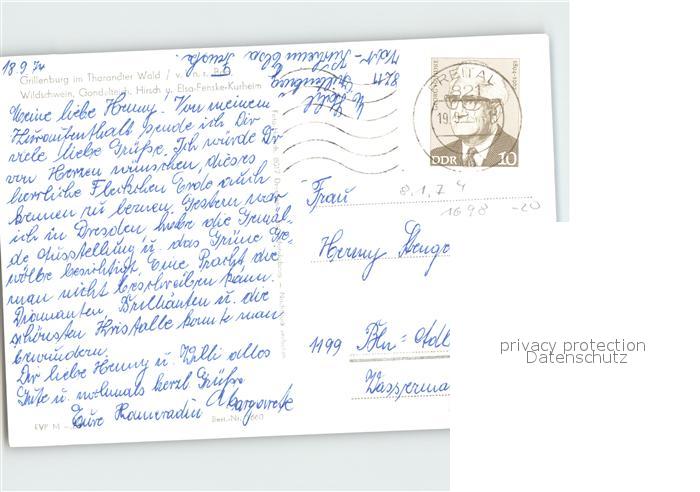 18.9.74
Grillenburg im Tharandter Wald / v. n. r. Bild
Wildschwein, Gondelteich, Hirsch u. Elsa-Fenske-Kurheim
Meine liebe Henny! Von meinem
Kuraufenthalt sende ich Dir
viele liebe Grüße. Ich würde Dir
von Herzen wünschen, dieses
herrliche Fleckchen Erde auch
kennen zu lernen. Gestern war
ich in Dresden habe die Gemäl-
de Ausstellung u. das Grüne Ge-
wölbe besichtigt. Eine Pracht die
man nicht beschreiben kann.
Diamanten, Brillianten u. die
schönsten Kristalle konnte man
bewundern.
Dir liebe Henny u. Willi alles
Gute u. nochmals herzl. Grüße
Eure Kameradin Margarete
EVP M
Best.-Nr.
8211
Grillenburg
Kurheim Elsa Fenske
FREITAL
821
19.9.74
DDR 10
8.1.74
1698 -20
Frau
Henny
1199 Bln = Adl
Wasserma
privacy protection
Datenschutz